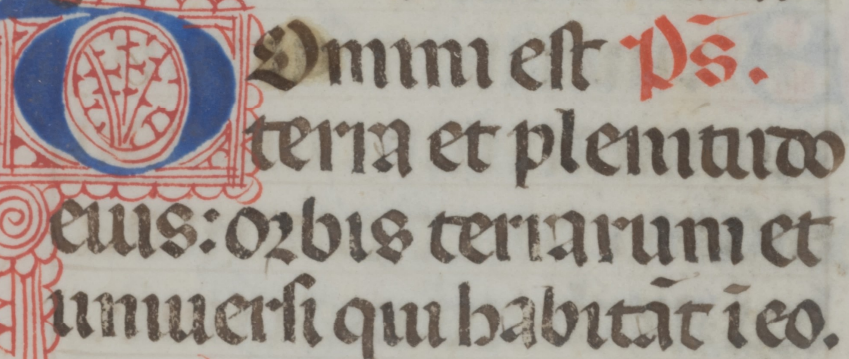 DOmini est p̄s.
terra et plenitudo
eius: orbis terrarum et
uniuersi qui habitāt ī eo.